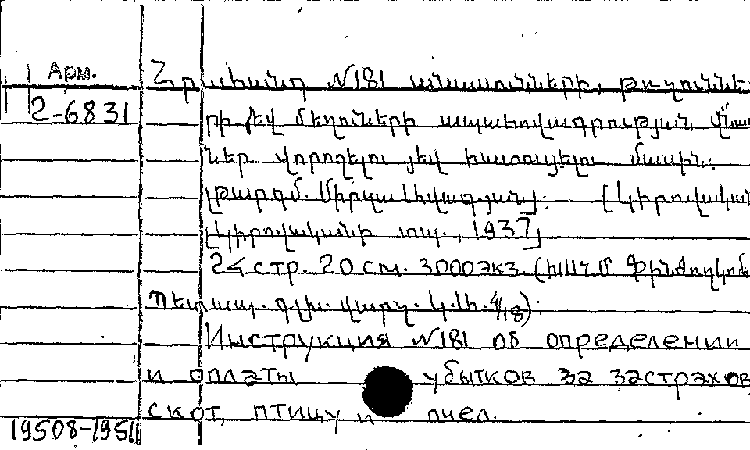 Арм.
2-6831
Հրահանգ №181 անասունների, թռչուննե
րի յեվ մեղուների ապահովագրության վնաս
ներ վորոշելու յեվ հատուցելու մասին:
[Կիրովական
[Կիրովականի տպ., 1937]
24 стр. 20 см. 3000 экз. (ԽՍՀՄ Ֆինժողկոմ
Պետապ. գլխ. վարչ.
Инструкция №181 об определении
и оплаты убытков за застрахов
скот, птицу и пчел.
19508-1951